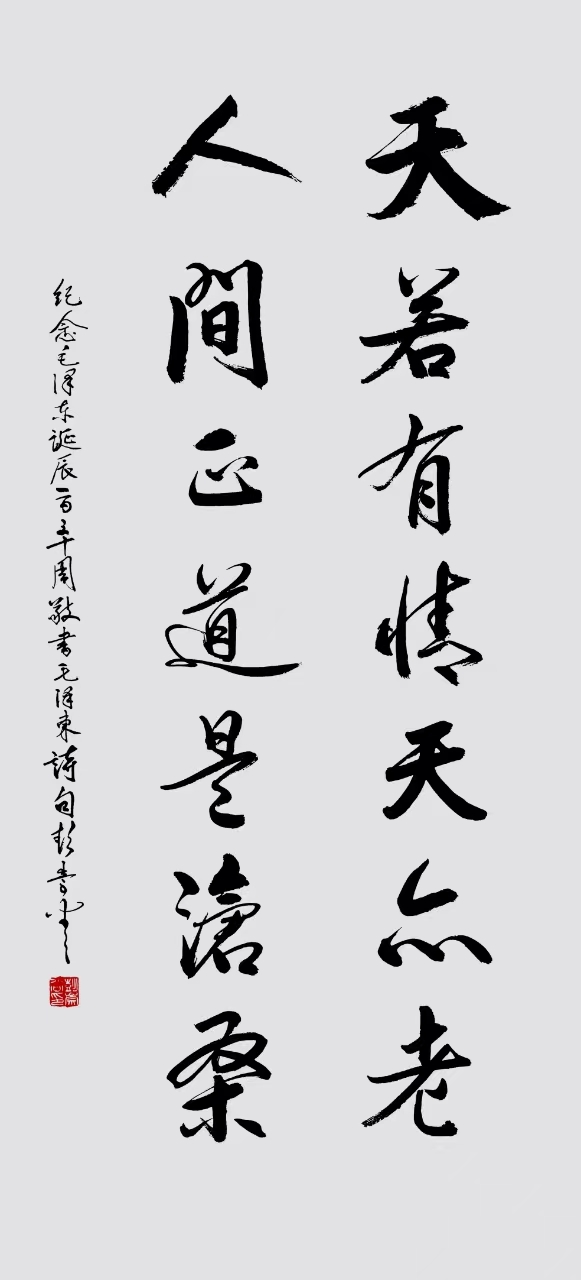 天若有情天亦老
人間正道是滄桑
纪念毛泽东诞辰一百三十周敬书毛泽東詩句彭